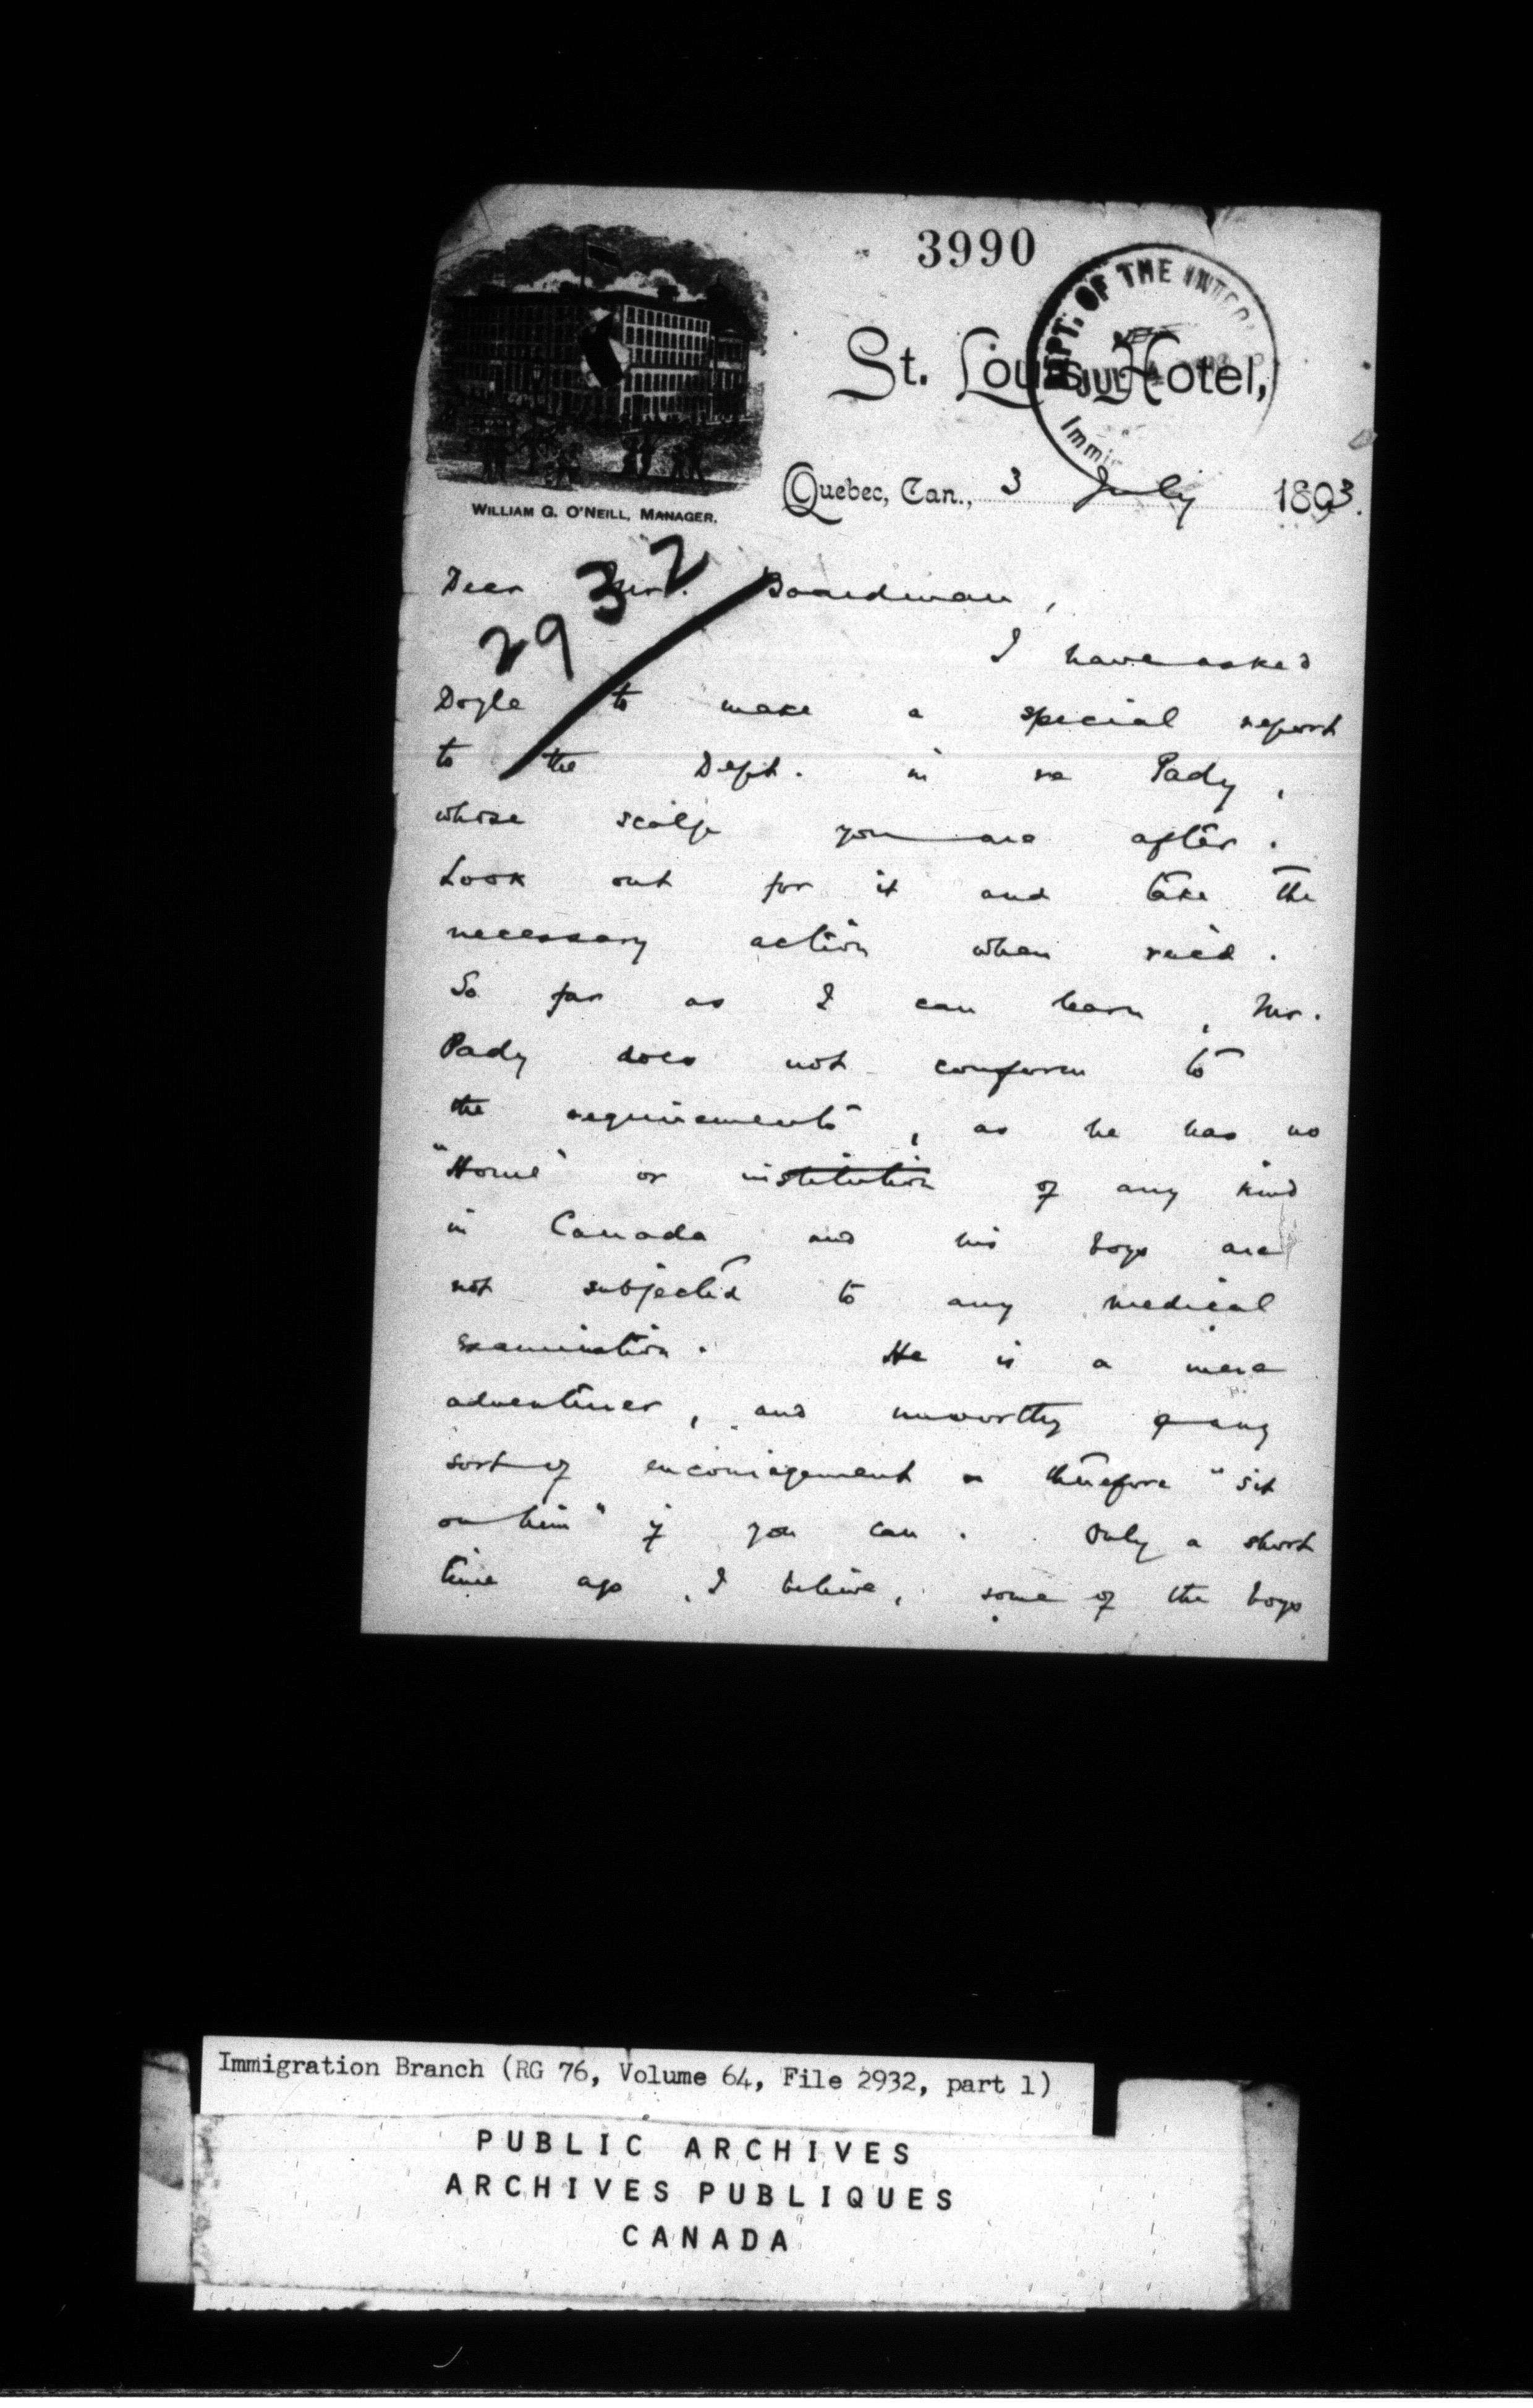 3990
DEPT. OF THE INTERIOR
JUL 4
Immi
St. Louis Hotel,
Quebec, Can., 3 July 1893.
WILLIAM G. O'NEILL, MANAGER.
2932
Dear Mr. Boardman,
I have asked
Doyle to make a special report
to the Dept. in re Pady,
whose scalp you are after.
Look out for it and take the
necessary action when rec'd.
So far as I can learn, Mr.
Pady does not conform to
the requirements, as he has no
"Home" or institution of any kind
in Canada and his boys are
not subjected to any medical
examination. He is a mere
adventurer, and unworthy of any
sort of encouragement so therefore "sit
on him" if you can. Only a short
time ago, I believe, some of the boys
Immigration Branch (RG 76, Volume 64, File 2932, part 1)
PUBLIC ARCHIVES
ARCHIVES PUBLIQUES
CANADA